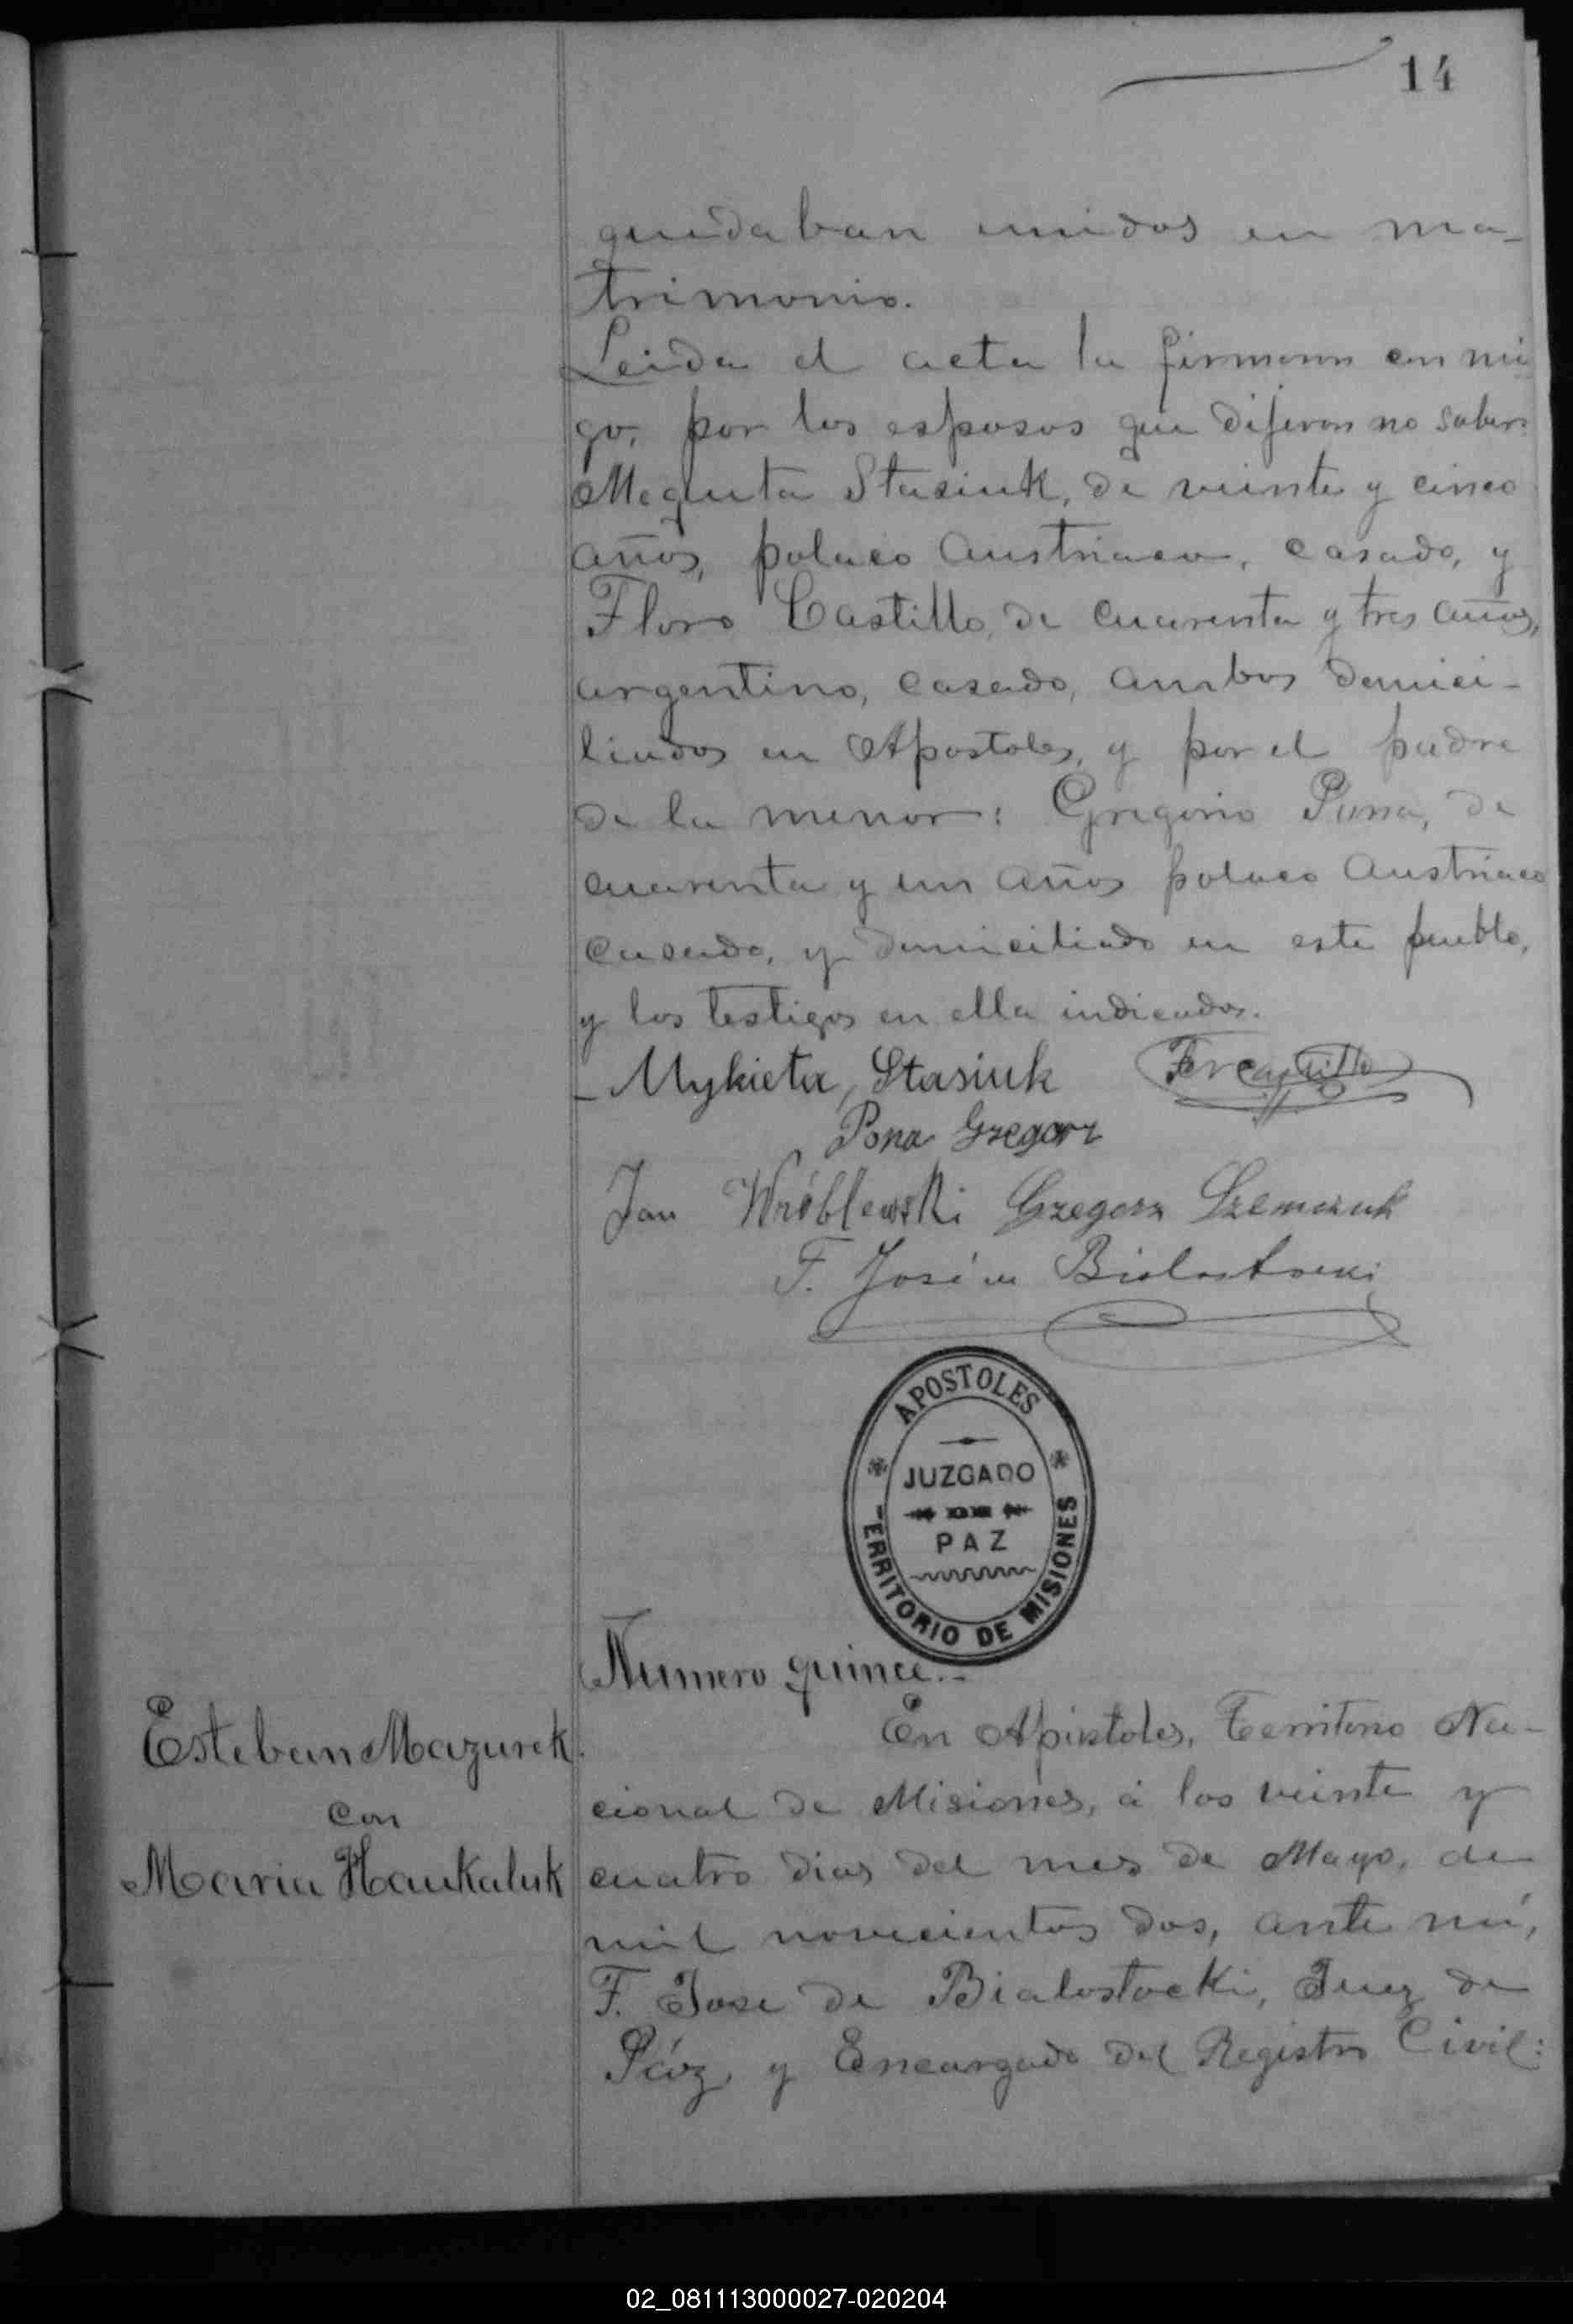 14
quedaban unidos en ma-
trimonio.
Leida el acta la firmaron con mi
go, por los esposos que dijeron no saber:
Mequita Stasiuk, de veinte y cinco
años, polaco Austriaco, casado, y
Floro Castillo, de cuarenta y tres años,
argentino, casado, ambos domici-
liados en Apostoles, y por el padre
de la menor: Gregorio Pona, de
cuarenta y un años polaco Austriaco
casado, y domiciliado en este pueblo,
y los testigos en ella indicados.
Mykieta Stasiuk
Castillo
Pona Grzegorz
Jan Wróblewski Grzegorz Szemczuk
F. José de Bialostocki
APOSTOLES
JUZGADO
DE
PAZ
TERRITORIO DE MISIONES
Numero quince.-
Esteban Mazurek
con
Maria Haukaluk
En Apóstoles, Territorio Na-
cional de Misiones, á los veinte y
cuatro dias del mes de Mayo, de
mil novecientos dos, ante mí,
F. Jose de Bialostocki, Juez de
Páz, y Encargado del Registro Civil:
02_081113000027-020204